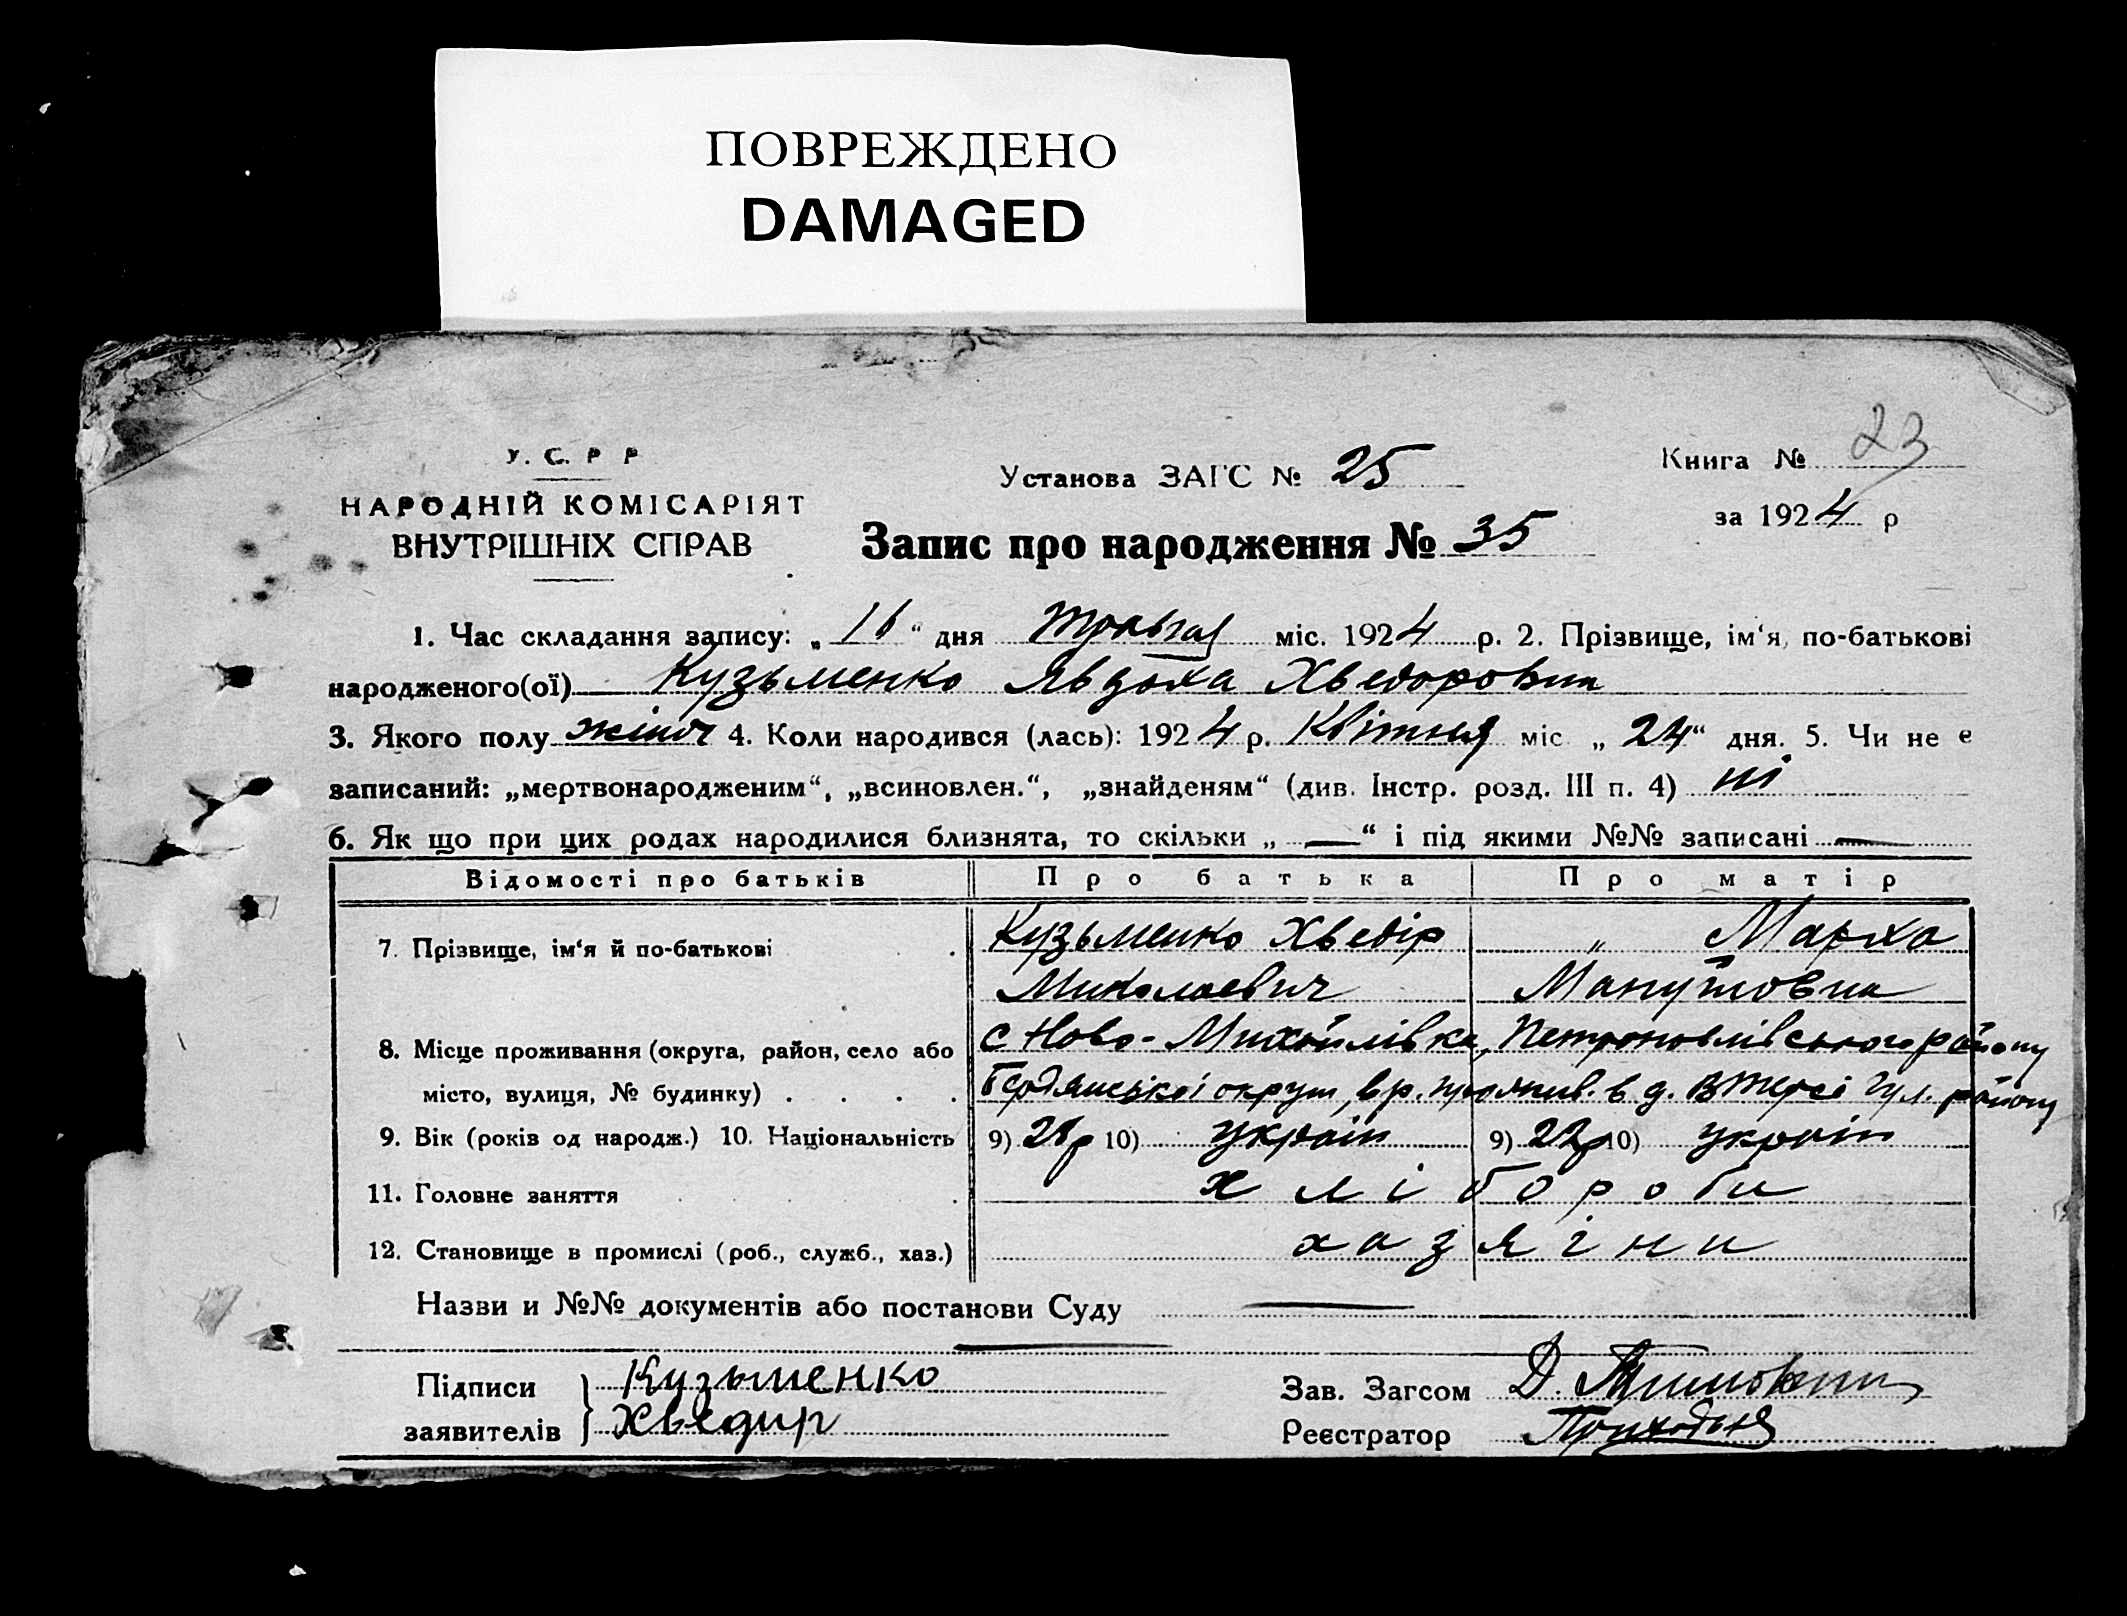 ПОВРЕЖДЕНО
DAMAGED
У. С. Р Р
НАРОДНІЙ КОМІСАРІЯТ
ВНУТРІШНІХ СПРАВ
Установа ЗАГС № 25
Запис про народження № 35
Книга № 23
за 1924 р
1. Час складання запису: „16“ дня травня міс. 1924 р. 2. Прізвище, ім‘я, по-батькові
народженого(ої) Кузьменко Явдоха Хведоровна
3. Якого полу жіноч 4. Коли народився (лась): 1924 р. Квітня міс. „24“ дня. 5. Чи не є
записаний: „мертвонародженим“, „всиновлен.“, „знайденям“ (див. Інстр. розд. III п. 4) ні
6. Як що при цих родах народилися близнята, то скільки „—“ і під якими №№ записані —
Відомості про батьків Про батька Про матір
7. Прізвище, ім‘я й по-батькові . Кузьменко Хведір „ Марха
Миколаевич Мануйловна
8. Місце проживання (округа, район, село або с Ново-Михайлівка, Петропавлівського району
місто, вулиця, № будинку) . . . . Бердянської округи, в д. району
9. Вік (років од народж.) 10. Національність 9) 28р 10) україн 9) 22р 10) україн
11. Головне заняття . хлібороби
12. Становище в промислі (роб., служб., хаз.) хазяіни
Назви и №№ документів або постанови Суду —
Підписи Кузьменко
заявителів Хведир
Зав. Загсом Д.
Реєстратор Приходько